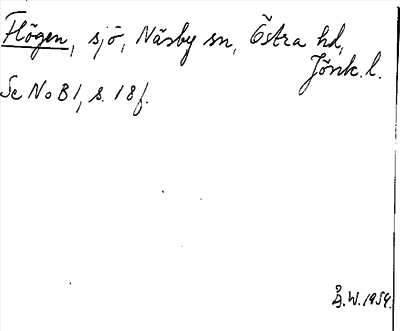 Flögen, sjö, Näsby sn, Östra hd,
Jönk. l.
Se NoB 1, s. 18 f.
Å.W. 1954.